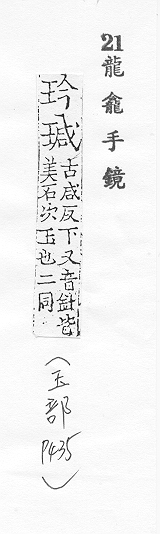 21龍龕手鏡
玪瑊
古咸反下又音針皆
美石次玉也二同
(玉部 P435)